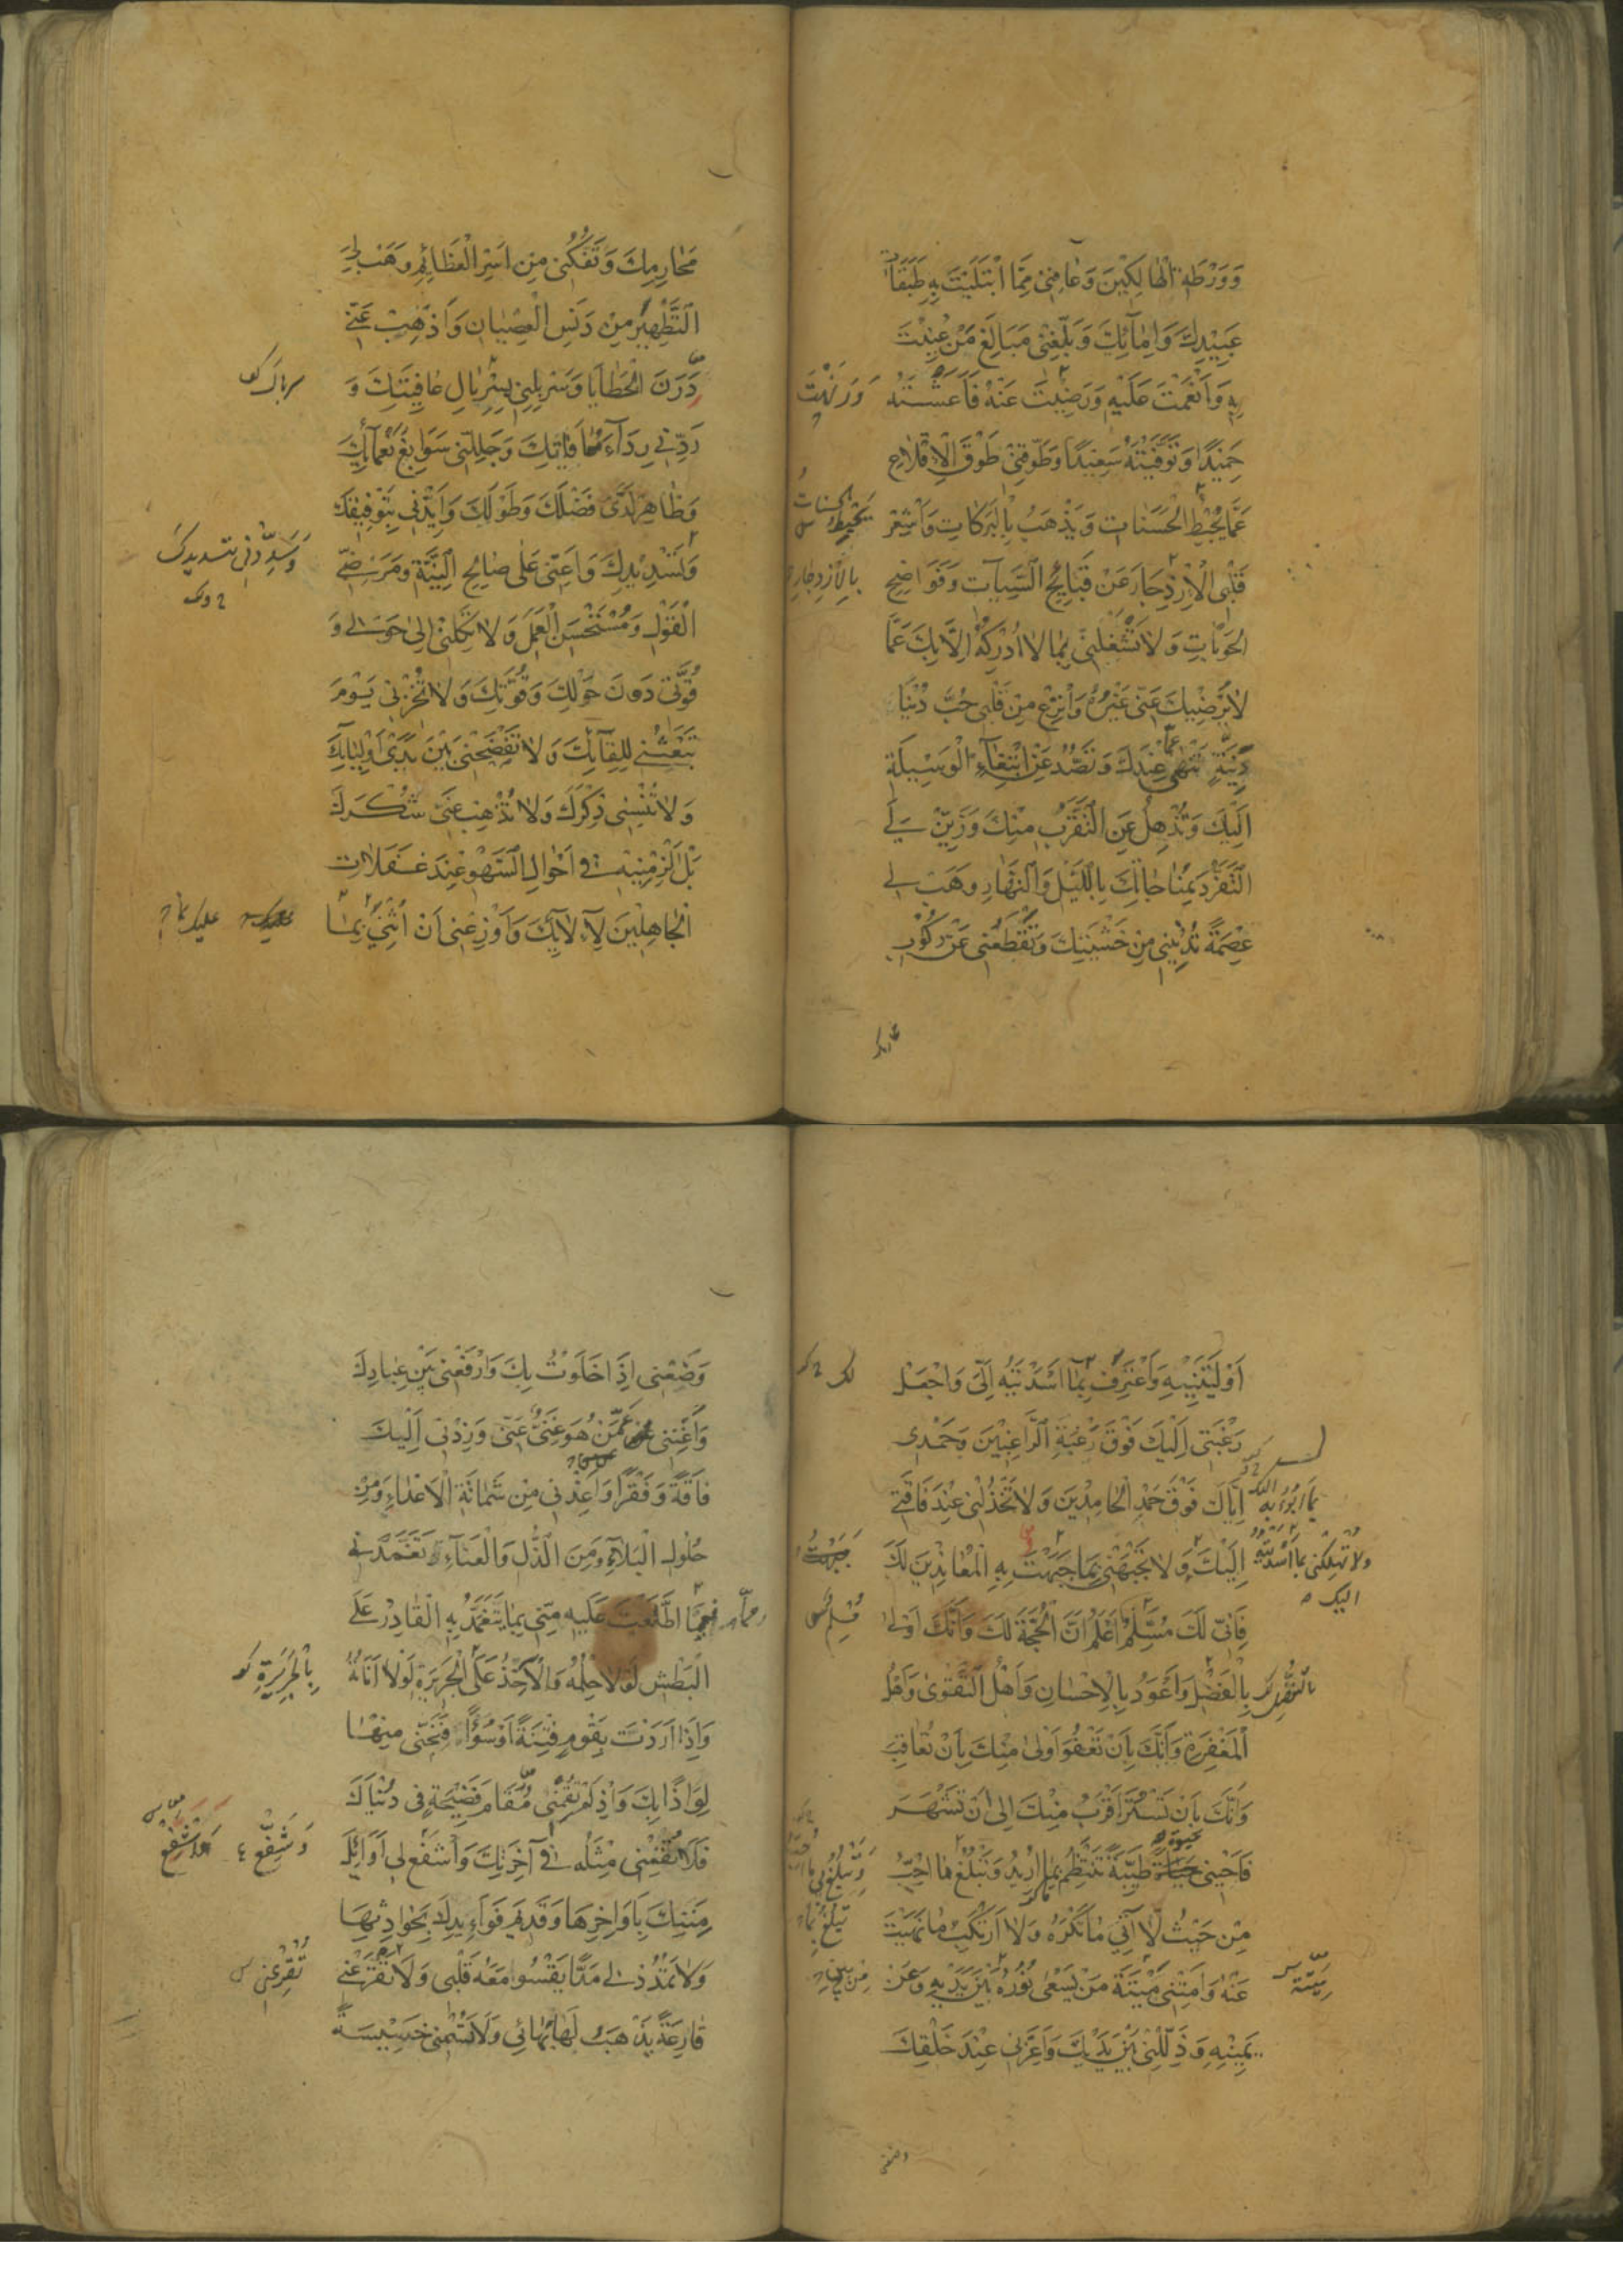 وَوَرْطَةِ الْهَالِكِينَ وَعَافِنِى مِمَّا ابْتَلَيْتَ بِهِ طَبَقَاتِ
عَبِيْدِكَ وَاِمَآئِكَ وَبَلِّغْنِى مَبَالِغَ مَنْ عُنِيْتَ
بِهِ وَاَنْعَمْتَ عَلَيْهِ وَرَضِيْتَ عَنْهُ فَاَعَشْتَهُ
حَمِيْدًا وَتَوَفَّيْتَهُ سَعِيْدًا وَطَوِّقْنِى طَوْقَ الْاِقْلَاعِ
عَمَّا يُحْبِطُ الْحَسَنَاتِ وَيَذْهَبُ بِالْبَرَكَاتِ وَاَشْعِرْ
يُحْبِطُ الحسنات
قَلْبِىَ الْاِزْدِجَارَ عَنْ قَبَائِحِ السَّيِّآتِ وَفَوَاضِحِ
بِالاِزْدِجَارِ
الْحَوْبَاتِ وَلَا تَشْغَلْنِى بِمَا لَا اُدْرِكُهُ اِلَّا بِكَ عَمَّا
لَا يُرْضِيْكَ عَنِّى غَيْرُهُ وَانْزِعْ مِنْ قَلْبِى حُبَّ دُنْيَا
دَنِيَّةٍ تَنْهٰى عَمَّا عِنْدَكَ وَتَصُدُّ عَنِ ابْتِغَآءِ الْوَسِيْلَةِ
اِلَيْكَ وَتُذْهِلُ عَنِ التَّقَرُّبِ مِنْكَ وَزَيِّنْ لِىَ
التَّفَرُّدَ بِمُنَاجَاتِكَ بِاللَّيْلِ وَالنَّهَارِ وَهَبْ لِى
عِصْمَةً تُدْنِيْنِى مِنْ خَشْيَتِكَ وَتَقْطَعُنِى عَنْ رُكُوْبِ
محارمك
مَحَارِمِكَ وَتَفُكَّنِى مِنْ اَسْرِ الْعَظَائِمِ وَهَبْ لِىَ
التَّطْهِيْرَ مِنْ دَنَسِ الْعِصْيَانِ وَاَذْهِبْ عَنِّى
دَرَنَ الْخَطَايَا وَسَرْبِلْنِى بِسِرْبَالِ عَافِيَتِكَ وَ
رَدِّنِى رِدَآءَ مُعَافَاتِكَ وَجَلِّلْنِى سَوَابِغَ نَعْمَآئِكَ
وَظَاهِرْ لَدَىَّ فَضْلَكَ وَطَوْلَكَ وَاَيِّدْنِى بِتَوْفِيْقِكَ
وَتَسْدِيْدِكَ وَاَعِنِّى عَلٰى صَالِحِ النِّيَّةِ وَمَرْضِىِّ
وَسَدِّدْنِى بتسديدك
الْقَوْلِ وَمُسْتَحْسَنِ الْعَمَلِ وَلَا تَكِلْنِى اِلٰى حَوْلِى وَ
قُوَّتِى دُوْنَ حَوْلِكَ وَقُوَّتِكَ وَلَا تُخْزِنِى يَوْمَ
تَبْعَثُنِى لِلِقَآئِكَ وَلَا تَفْضَحْنِى بَيْنَ يَدَىْ اَوْلِيَائِكَ
وَلَا تُنْسِنِى ذِكْرَكَ وَلَا تُذْهِبْ عَنِّى شُكْرَكَ
بَلْ اَلْزِمْنِيْهِ فِى اَحْوَالِ السَّهْوِ عِنْدَ غَفَلَاتِ
الْجَاهِلِيْنَ لِآلَائِكَ وَاَوْزِعْنِى اَنْ اُثْنِىَ بِمَا
عليك بما
اَوْلَيْتَنِيْهِ وَاَعْتَرِفَ بِمَا اَسْدَيْتَهُ اِلَىَّ وَاجْعَلْ
رَغْبَتِى اِلَيْكَ فَوْقَ رَغْبَةِ الرَّاغِبِيْنَ وَحَمْدِى
اِيَّاكَ فَوْقَ حَمْدِ الْحَامِدِيْنَ وَلَا تَخْذُلْنِى عِنْدَ فَاقَتِى
اِلَيْكَ وَلَا تَجْبَهْنِى بِمَا جَبَهْتَ بِهِ الْمُعَانِدِيْنَ لَكَ
ولا تُهْلِكْنِى بما اَسْدَيْتُهُ
اليك
فَاِنِّى لَكَ مُسَلِّمٌ اَعْلَمُ اَنَّ الْحُجَّةَ لَكَ وَاَنَّكَ اَوْلٰى
بِالْفَضْلِ وَاَعْوَدُ بِالْاِحْسَانِ وَاَهْلُ التَّقْوٰى وَاَهْلُ
الْمَغْفِرَةِ وَاَنَّكَ بِاَنْ تَعْفُوَ اَوْلٰى مِنْكَ بِاَنْ تُعَاقِبَ
وَاَنَّكَ بِاَنْ تَسْتُرَ اَقْرَبُ مِنْكَ اِلٰى اَنْ تَشْهَرَ
فَاَحْيِنِى حَيَاةً طَيِّبَةً تَنْتَظِمُ بِمَا اُرِيْدُ وَتَبْلُغُ مَا اُحِبُّ
مِنْ حَيْثُ لَا آتِى مَا تَكْرَهُ وَلَا اَرْتَكِبُ مَا نَهَيْتَ
عَنْهُ وَاَمِتْنِى مِيْتَةَ مَنْ يَسْعٰى نُوْرُهُ بَيْنَ يَدَيْهِ وَعَنْ
يَمِيْنِهِ وَذَلِّلْنِى بَيْنَ يَدَيْكَ وَاَعِزَّنِى عِنْدَ خَلْقِكَ
وضعنى
وَضَعْنِى اِذَا خَلَوْتُ بِكَ وَارْفَعْنِى بَيْنَ عِبَادِكَ
وَاَغْنِنِى عَمَّنْ هُوَ غَنِىٌّ عَنِّى وَزِدْنِى اِلَيْكَ
فَاقَةً وَفَقْرًا وَاَعِذْنِى مِنْ شَمَاتَةِ الْاَعْدَاءِ وَمِنْ
حُلُولِ الْبَلَآءِ وَمِنَ الذُّلِّ وَالْعَنَآءِ تَغَمَّدْنِى
فِيْمَا اطَّلَعْتَ عَلَيْهِ مِنِّى بِمَا يَتَغَمَّدُ بِهِ الْقَادِرُ عَلَى
الْبَطْشِ لَوْلَا حِلْمُهُ وَالْآخِذُ عَلَى الْجَرِيْرَةِ لَوْلَا اَنَاتُهُ
بِالْجَرِيْرَةِ
وَاِذَا اَرَدْتَ بِقَوْمٍ فِتْنَةً اَوْ سُوْءًا فَنَجِّنِى مِنْهَا
لِوَاذًا بِكَ وَاِذْ لَمْ تُقِمْنِى مَقَامَ فَضِيْحَةٍ فِى دُنْيَاكَ
فَلَا تُقِمْنِى مِثْلَهُ فِى آخِرَتِكَ وَاشْفَعْ لِى اَوَائِلَ
وَشَفِّعْ
مِنَنِكَ بِاَوَاخِرِهَا وَقَدِيْمَ فَوَائِدِكَ بِحَوَادِثِهَا
وَلَا تَمْدُدْ لِى مَدًّا يَقْسُو مَعَهُ قَلْبِى وَلَا تَقْرَعْنِى
تُقْرِعْنِى
قَارِعَةً يَذْهَبُ لَهَا بَهَائِى وَلَا تَسُمْنِى خَسِيْسَةً